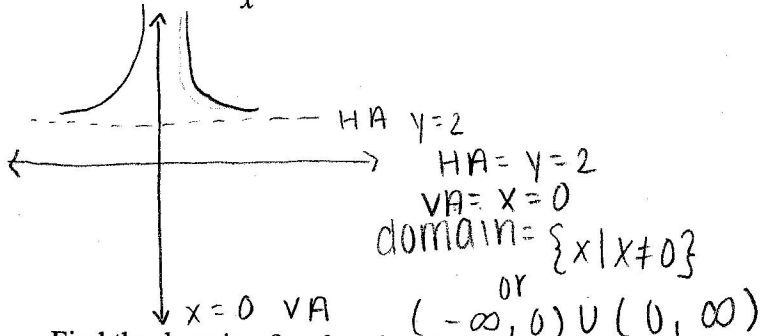 x
HA y=2
HA= y=2
VA= x=0
domain= {x|x≠0}
or
x=0 VA (-∞,0)∪(0,∞)